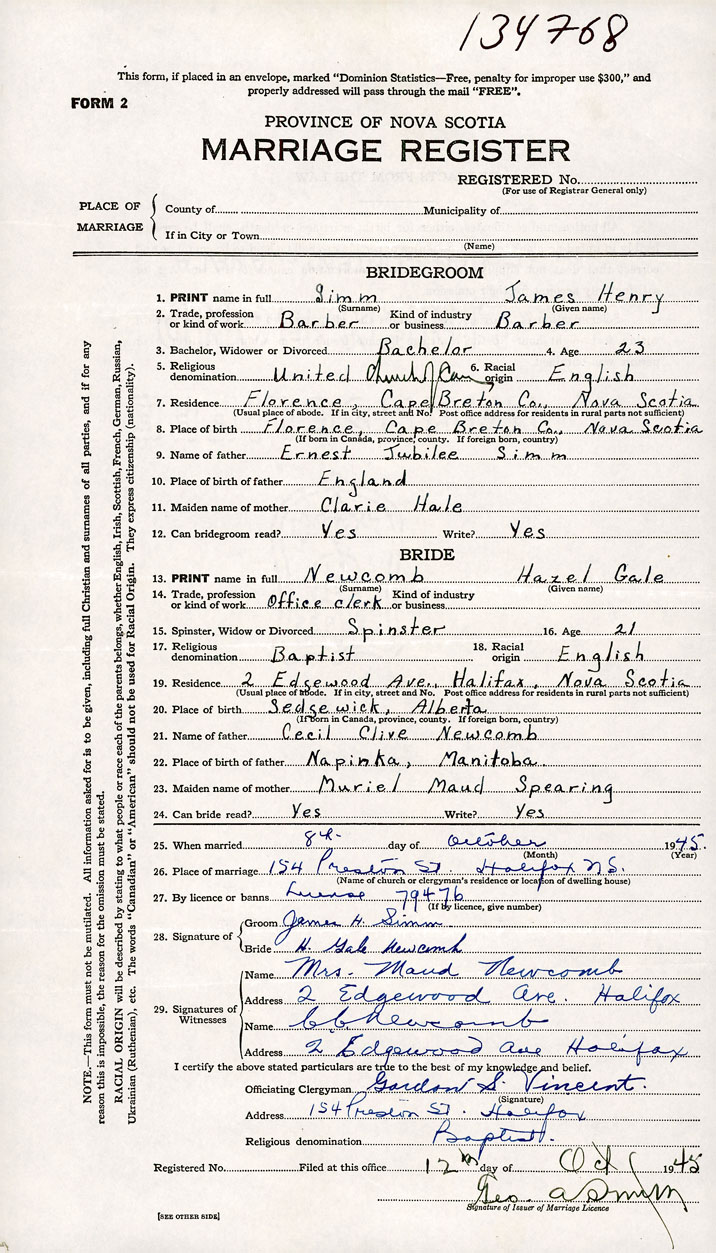 134768
This form, if placed in an envelope, marked "Dominion Statistics—Free, penalty for improper use $300," and
properly addressed will pass through the mail "FREE".
FORM 2
PROVINCE OF NOVA SCOTIA
MARRIAGE REGISTER
REGISTERED No.
(For use of Registrar General only)
PLACE OF MARRIAGE
County of Municipality of
If in City or Town
(Name)
BRIDEGROOM
1. PRINT name in full Simm James Henry
(Surname) (Given name)
2. Trade, profession or kind of work Barber Kind of industry or business Barber
3. Bachelor, Widower or Divorced Bachelor 4. Age 23
5. Religious denomination United Church/Can 6. Racial origin English
7. Residence Florence, Cape Breton Co., Nova Scotia
(Usual place of abode. If in city, street and No. Post office address for residents in rural parts not sufficient)
8. Place of birth Florence, Cape Breton Co., Nova Scotia
(If born in Canada, province, county. If foreign born, country)
9. Name of father Ernest Jubilee Simm
10. Place of birth of father England
11. Maiden name of mother Clarie Hale
12. Can bridegroom read? Yes Write? Yes
BRIDE
13. PRINT name in full Newcomb Hazel Gale
(Surname) (Given name)
14. Trade, profession or kind of work Office clerk Kind of industry or business
15. Spinster, Widow or Divorced Spinster 16. Age 21
17. Religious denomination Baptist 18. Racial origin English
19. Residence 2 Edgewood Ave., Halifax, Nova Scotia
(Usual place of abode. If in city, street and No. Post office address for residents in rural parts not sufficient)
20. Place of birth Sedgewick, Alberta
(If born in Canada, province, county. If foreign born, country)
21. Name of father Cecil Clive Newcomb
22. Place of birth of father Napinka, Manitoba
23. Maiden name of mother Muriel Maud Spearing
24. Can bride read? Yes Write? Yes
25. When married 8th day of October 1945.
(Month) (Year)
26. Place of marriage 154 Preston St. Halifax N.S.
(Name of church or clergyman's residence or location of dwelling house)
27. By licence or banns License 79476
(If by licence, give number)
28. Signature of
Groom James H. Simm
Bride H. Gale Newcomb
29. Signatures of Witnesses
Name Mrs. Maud Newcomb
Address 2 Edgewood Ave. Halifax
Name CC Newcomb
Address 2 Edgewood Ave Halifax
I certify the above stated particulars are true to the best of my knowledge and belief.
Officiating Clergyman Gordon S. Vincent.
(Signature)
Address 154 Preston St. Halifax
Religious denomination Baptist.
Registered No. Filed at this office 12th day of Oct 1945
Geo. A Smith
Signature of Issuer of Marriage Licence
[SEE OTHER SIDE]
NOTE.—This form must not be mutilated. All information asked for is to be given, including full Christian and surnames of all parties, and if for any
reason this is impossible, the reason for the omission must be stated.
RACIAL ORIGIN will be described by stating to what people or race each of the parents belongs, whether English, Irish, Scottish, French, German, Russian,
Ukrainian (Ruthenian), etc. The words "Canadian" or "American" should not be used for Racial Origin. They express citizenship (nationality).